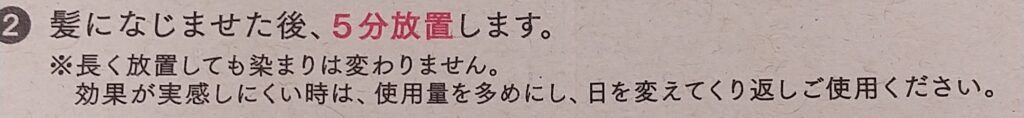 ❷ 髪になじませた後、5分放置します。
※長く放置しても染まりは変わりません。
効果が実感しにくい時は、使用量を多めにし、日を変えてくり返しご使用ください。